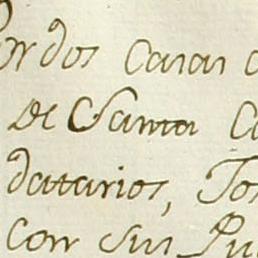 Por dos Casas
de Santa
datarios,
con sus